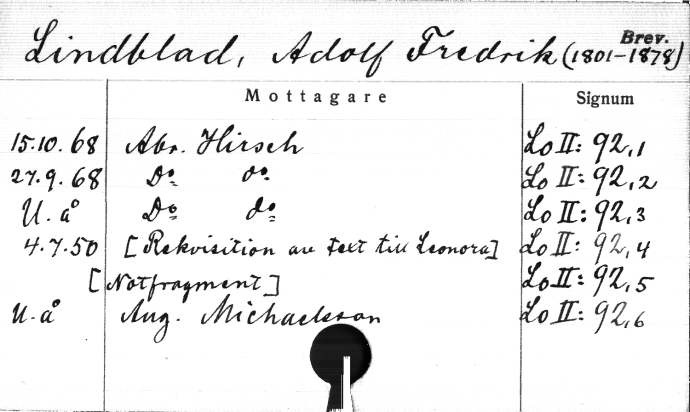 Brev.
Lindblad, Adolf Fredrik (1801-1878)
Mottagare Signum
15.10.68 Abr. Hirsch Lo II: 92,1
27.9.68 Do do Lo II: 92,2
U.å Do do Lo II: 92,3
4.7.50 [Rekvisition av text till Leonora] Lo II: 92,4
[Notfragment] Lo II: 92,5
U.å Aug. Michaelsson Lo II: 92,6